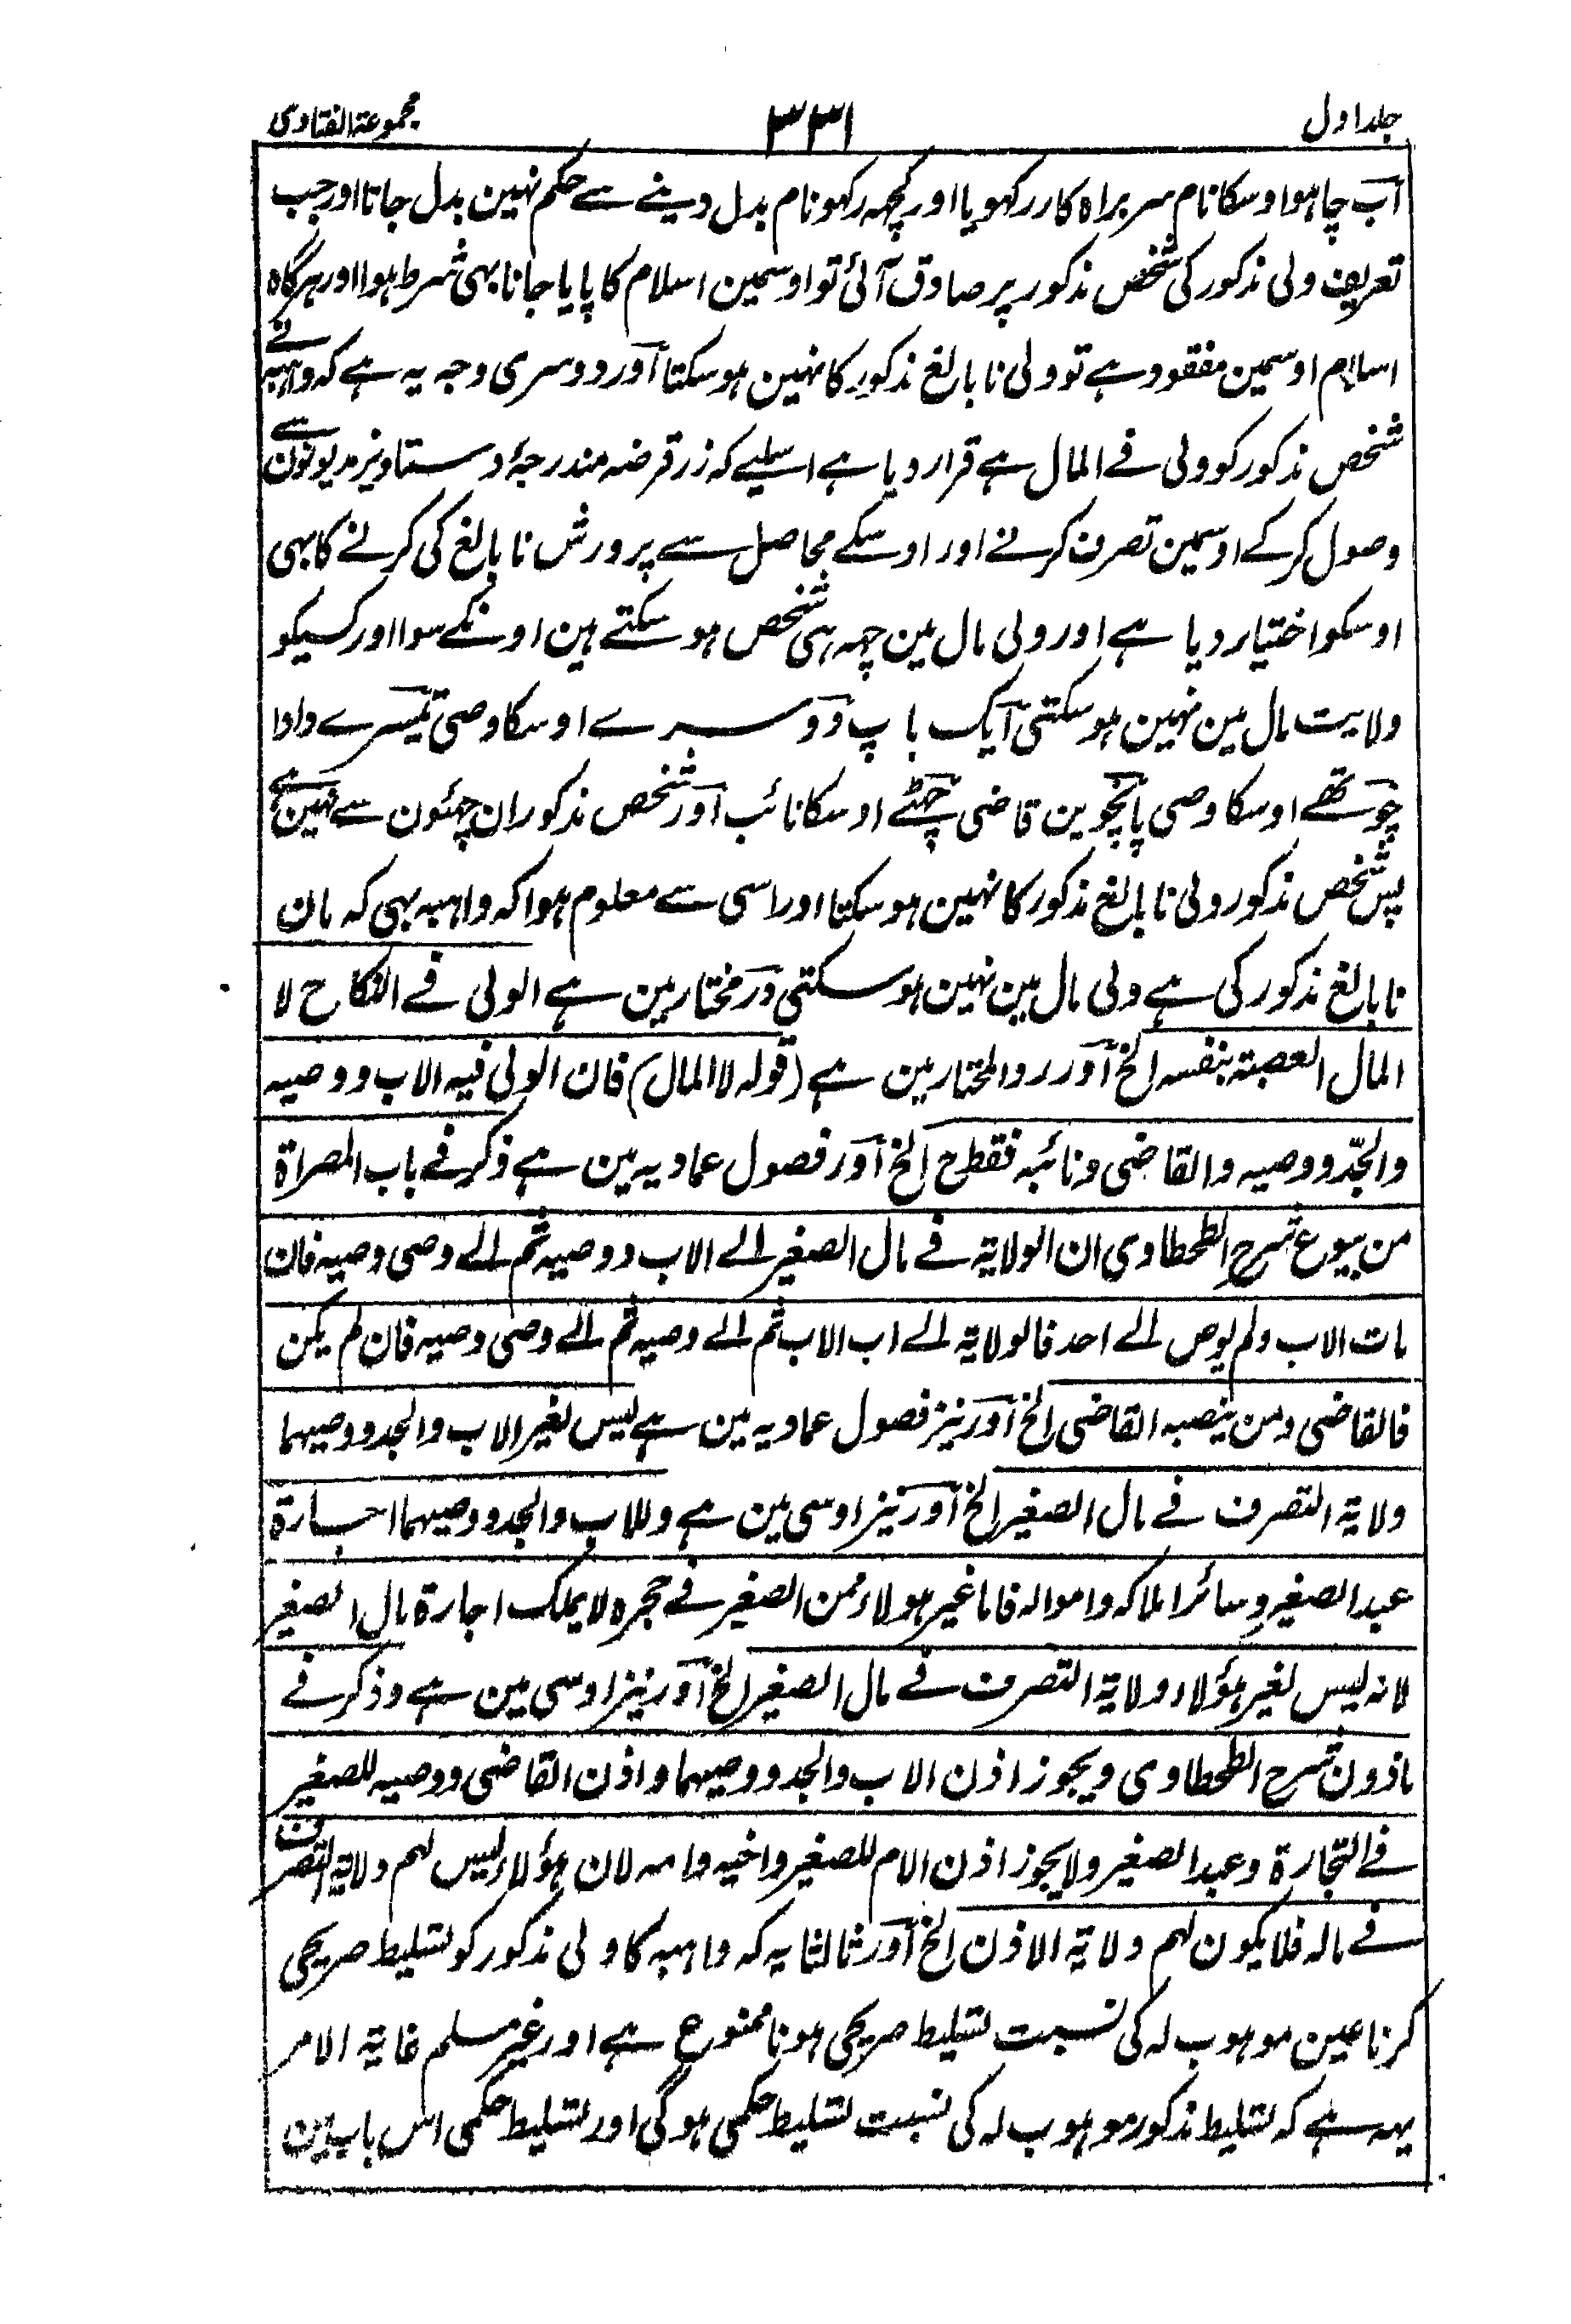 جلد اول ۳۳۱ مجموعۃ الفتاوی
آب چاہو اوسکا نام سربراہ کار رکہو یا اور کچہہ رکہو نام بدل دینے سے حکم نہین بدل جاتا اور جب
تعریف ولی مذکور کی شخص مذکور پر صادق آئی تو اوسمین اسلام کا پایا جانا بہی شرط ہوا اور ہرگاہ
اسلام اوسمین مفقود ہے تو ولی نا بالغ مذکور کا نہین ہو سکتا آور دوسری وجہ یہ ہے کہ واہبہ نے
شخص مذکور کو ولی فے المال ہے قرار دیا ہے اسلیے کہ زر قرضہ مندرجۂ دستاویز مدیونون سے
وصول کر کے اوسمین تصرف کرنے اور اوسکے محاصل سے پرورش نا بالغ کی کرنے کا بہی
اوسکو اختیار دیا ہے اور ولی مال مین چہہ ہی شخص ہو سکتے ہین اونکے سوا اور کسیکو
ولایت مال مین نہین ہو سکتی آیک باپ دوسرے اوسکا وصی تیسرے دادا
چوتھے اوسکا وصی پانچوین قاضی چھٹے اوسکا نائب آور شخص مذکور ان چہئون سے نہین ہے
پس شخص مذکور ولی نا بالغ مذکور کا نہین ہو سکتا اور اسی سے معلوم ہوا کہ واہبہ بہی کہ مان
نا بالغ مذکور کی ہے ولی مال مین نہین ہو سکتی در مختار مین ہے الولی فے النکاح لا
المال العصبۃ بنفسہ الخ آور رد المحتار مین ہے (قولہ لا المال) فان الولی فیہ الاب و وصیہ
والجدّ و وصیہ والقاضی و نائبہ فقط ح الخ آور فصول عمادیہ مین ہے ذکر فے باب المصراۃ
من بیوع شرح الطحطاوی ان الولایۃ فے مال الصغیر الے الاب و وصیہ ثم الے وصی وصیہ فان
مات الاب ولم یوص الے احد فالولایۃ الے اب الاب ثم الے وصیہ ثم الے وصی وصیہ فان لم یکن
فالقاضی ومن ینصبہ القاضی الخ آور نیز فصول عمادیہ مین ہے لیس لغیر الاب والجد و وصیہما
ولایۃ التصرف فے مال الصغیر الخ آور نیز اوسی مین ہے وللاب والجد و وصیہما اجارۃ
عبد الصغیر وسائر املاکہ واموالہ فاما غیر ہولاء ممن الصغیر فے حجرہ لا یملک اجارۃ مال الصغیر
لانہ لیس لغیر ہؤلاء ولایۃ التصرف فے مال الصغیر الخ آور نیز اوسی مین ہے وذکر فے
ماذون شرح الطحطاوی ویجوز اذن الاب والجد و وصیہما واذن القاضی و وصیہ للصغیر
فے التجارۃ وعبد الصغیر ولا یجوز اذن الام للصغیر واخیہ وامہ لان ہؤلاء لیس لہم ولایۃ التصرف
فے مالہ فلا یکون لہم ولایۃ الاذن الخ آور ثالثا یہ کہ واہبہ کا ولی مذکور کو تسلیط صریحی
کرنا عین موہوب لہ کی نسبت تسلیط صریحی ہونا ممنوع ہے اور غیر مسلم غایۃ الامر
یہہ ہے کہ تسلیط مذکور موہوب لہ کی نسبت تسلیط حکمی ہوگی اور تسلیط حکمی اس باب مین